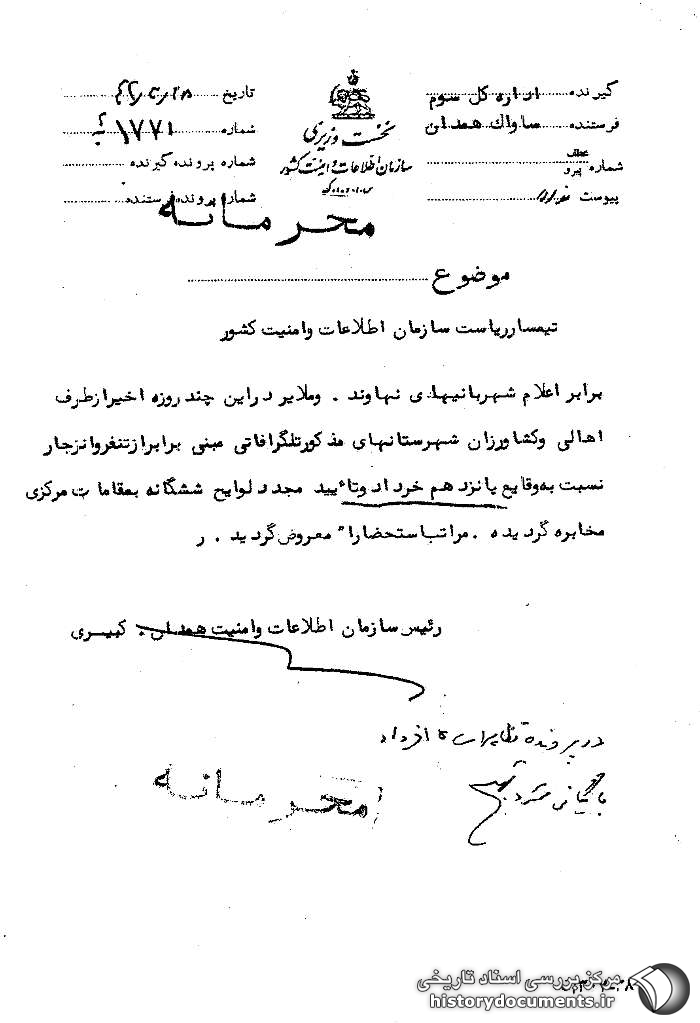 گیرنده اداره کل سوم
فرستنده ساواک همدان
شماره عطف پیرو
پیوست ندارد
نخست وزیری
سازمان اطلاعات و امنیت کشور
تاریخ
شماره ۱۷۷۱
شماره پرونده گیرنده
شماره پرونده فرستنده
محرمانه
موضوع
تیمسار ریاست سازمان اطلاعات وامنیت کشور
برابر اعلام شهربانیهای نهاوند . وملایر دراین چند روزه اخیرازطرف
اهالی وکشاورزان شهرستانهای مذکورتلگرافاتی مبنی برابرازتنفروانزجار
نسبت به وقایع پانزدهم خرداد وتائید مجدد لوایح ششگانه بمقامات مرکزی
مخابره گردیده . مراتب استحضارا" معروض گردید . ر
رئیس سازمان اطلاعات وامنیت همدان . کبیری
در پرونده تظاهرات ۱۵ خرداد
بایگانی شود
محرمانه
مرکز بررسی اسناد تاریخی
historydocuments.ir